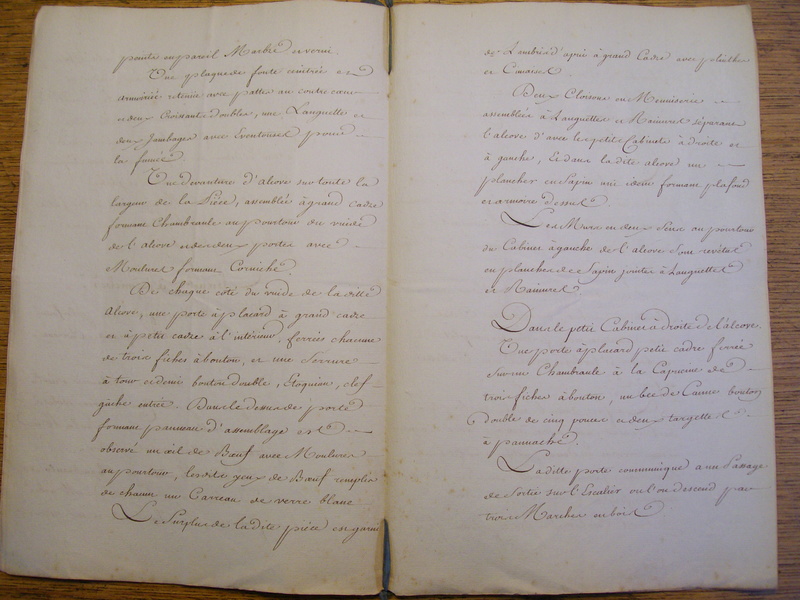 peinte en pareil Marbre et verni.
Une plaque de fonte ceintrée et
armoiriée retenue avec pattes au contre coeur
et deux Croissants doubles, une Languette et
deux Jambages avec Eventouses pour
la fumée
Une devanture d'alcove sur toute la
largeur de la Pièce, assemblée à grand cadre
formant Chambranle au pourtour du vuide
de l'alcove et des deux portes avec
Moulures formant Corniche.
De chaque côté du vuide de la ditte
Alcove, une porte à placard à grand cadre
et à petit cadre à l'interieur, ferrées chacune
de trois fiches à bouton, et une Serrure
à tour et demi bouton double, clef
gâche entrée. Dans le dessus de porte
formant panneau d'assemblage est
observé un œil de Bœuf avec Moulures
au pourtour, les dits yeux de Bœuf remplis
de chacun un Carreau de verre blanc
Le Surplus de la dite pièce est garni
de Lambris d'apui à grand Cadre avec plinthes
et Cimaises
Deux Cloisons en Menuiserie
assemblées à Languettes et Rainures séparant
l'alcove d'avec les petits Cabinets à droite et
à gauche, et dans la dite alcove un
plancher en Sapin uni idem formant plafond
et armoire dessus
Les Murs en deux Sens au pourtour
du Cabinet à gauche de l'alcove sont revêtus
en planches de Sapin jointes à Languettes
et Rainures
Dans le petit Cabinet à droite de l'alcove.
Une porte à placard petit cadre ferrée
sur un Chambranle à la Capucine de
trois fiches à bouton, un bec de Canne bouton
double de cinq pouces et deux targettes
à pannaches.
La ditte porte communique à un Passage
de Sortie sur l'Escalier où l'on descend par
trois Marches en bois